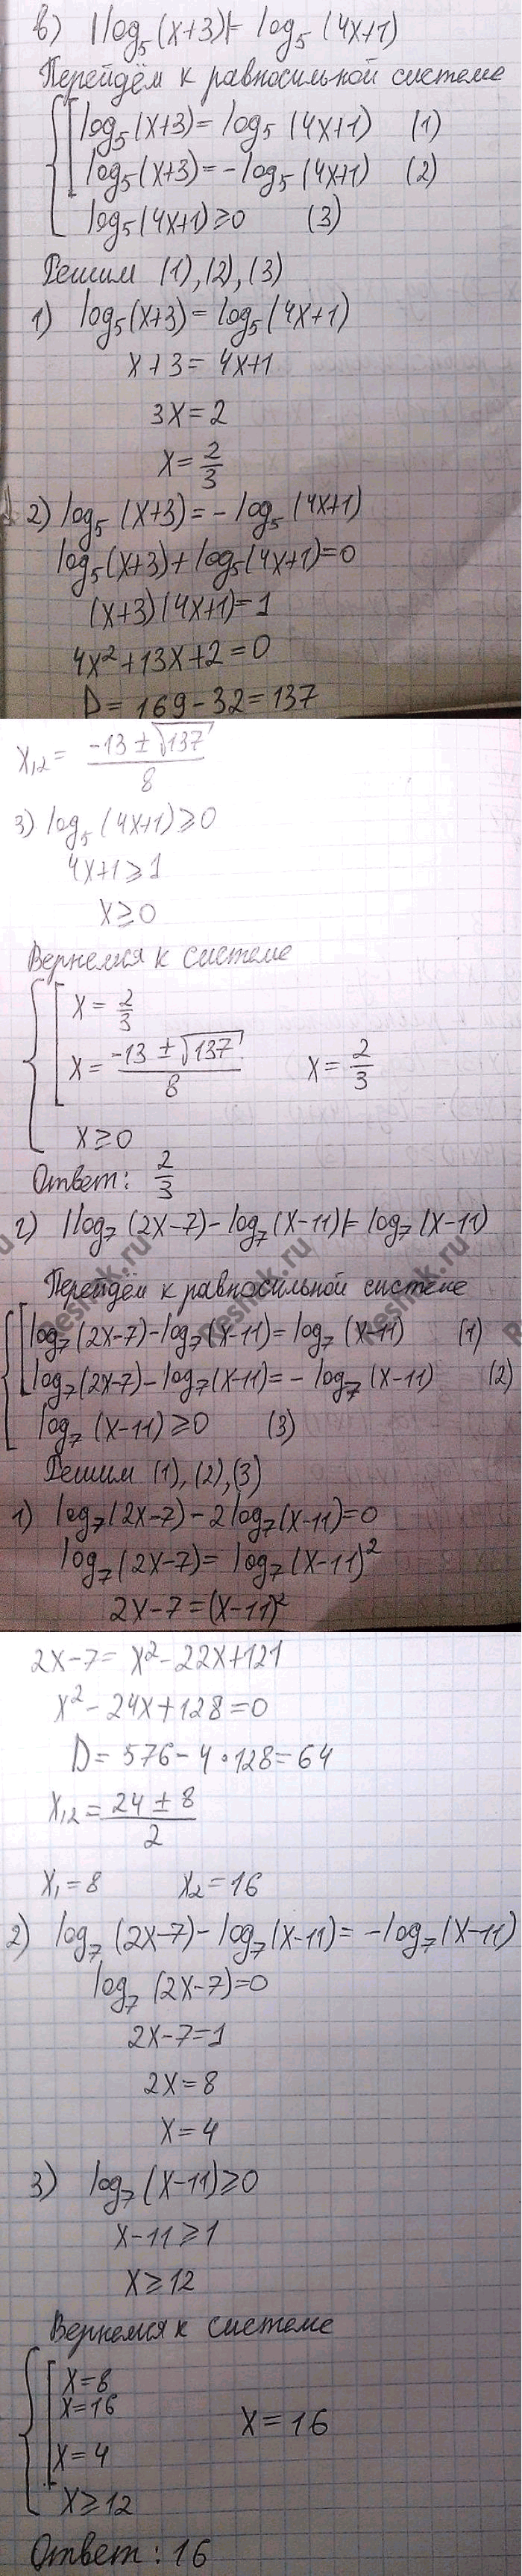 в) |log₅(x+3)|= log₅(4x+1)
Перейдём к равносильной системе
log₅(x+3)= log₅(4x+1) (1)
log₅(x+3)=-log₅(4x+1) (2)
log₅(4x+1)⩾0 (3)
Решим (1),(2),(3)
1) log₅(x+3)=log₅(4x+1)
x+3= 4x+1
3x=2
x=2/3
2) log₅(x+3)=-log₅(4x+1)
log₅(x+3)+log₅(4x+1)=0
(x+3)(4x+1)=1
4x²+13x+2=0
D= 169-32=137
x₁,₂= (-13±√137)/8
3) log₅(4x+1)⩾0
4x+1⩾1
x⩾0
Вернемся к системе
x=2/3
x=(-13±√137)/8 x=2/3
x⩾0
Ответ: 2/3
г) |log₇(2x-7)-log₇(x-11)|= log₇(x-11)
Перейдём к равносильной системе
log₇(2x-7)-log₇(x-11)=log₇(x-11) (1)
log₇(2x-7)-log₇(x-11)=-log₇(x-11) (2)
log₇(x-11)⩾0 (3)
Решим (1),(2),(3)
1) log₇(2x-7)-2log₇(x-11)=0
log₇(2x-7)= log₇(x-11)²
2x-7=(x-11)²
2x-7= x²-22x+121
x²-24x+128=0
D= 576-4·128=64
x₁,₂=(24±8)/2
x₁=8 x₂=16
2) log₇(2x-7)-log₇(x-11)=-log₇(x-11)
log₇(2x-7)=0
2x-7=1
2x=8
x=4
3) log₇(x-11)⩾0
x-11⩾1
x⩾12
Вернемся к системе
x=8
x=16
x=16
x=4
x⩾12
Ответ: 16